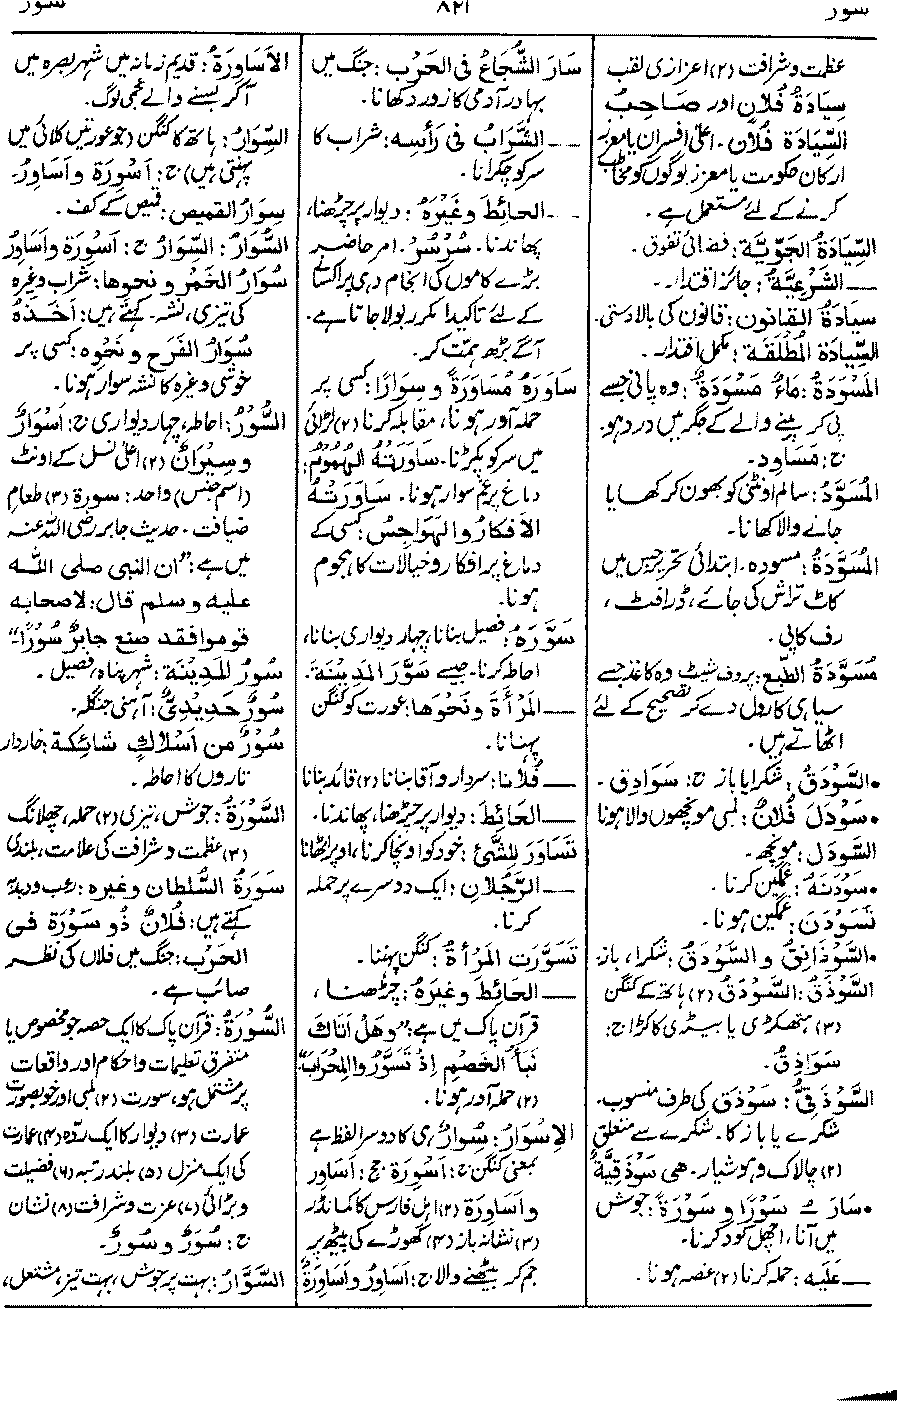 سور
۸۲۱
سور
عظمت و شرافت (۲) اعزازی لقب
سِيَادَةُ فُلَانٍ اور صَاحِبُ
السِّيَادَة فُلَان۔ اعلیٰ افسران یا معزز
ارکان حکومت یا معزز لوگوں کو مخاطب
کرنے کے لئے مستعمل ہے۔
السِّيَادَةُ الجَوِّيَّة: فضائی تفوق۔
— الشَّرْعِيَّةُ: جائز اقتدار۔
سِيَادَةُ القَانون: قانون کی بالا دستی۔
السِّيَادَةُ المُطْلَقَة: مکمل اقتدار۔
المَسْوَدَةُ: مَاءٌ مَسْوَدَةٌ: وہ پانی جسے
پی کر پینے والے کے جگر میں درد ہو۔
ج: مَسَاوِد۔
المُسَوَّدُ: سالم اونٹنی کو بھون کر کھایا
جانے والا کھانا۔
المُسَوَّدَةُ: مسودہ۔ ابتدائی تحریر جس میں
کاٹ تراش کی جائے، ڈرافٹ،
رف کاپی۔
مُسَوَّدَةُ الطَّبع: پروف شیٹ وہ کاغذ جسے
سیاہی کا رول دے کر تصحیح کے لئے
اٹھاتے ہیں۔
• السَّوْدَقُ: شکرا یا باز ج: سَوَادِق۔
• سَوْدَلَ فُلَانٌ: لمبی مونچھوں والا ہونا
السَّودَل: مونچھ۔
• سَوْدَنَهُ: غمگین کرنا۔
تَسَوْدَنَ: غمگین ہونا۔
• السَّوْذَانِقُ و السَّوْذَقُ: شکرا، باز
السَّوْذَقُ: السَّوْدَقُ (۲) ہاتھ کے کنگن
(۳) ہتھکڑی یا بیڑی کا کڑا ج:
سَوَاذِقُ۔
السَّوْذَقِيُّ: سَوْذَق کی طرف منسوب۔
شکرے یا باز کا۔ شکرے سے متعلق
(۲) چالاک و ہوشیار۔ هی سَوْذَقِيَّةٌ
• سَارَ ـُ سَوْرًا و سَوْرَةً: جوش
میں آنا، اچھل کود کرنا۔
— عَلَيه: حملہ کرنا (۲) غصہ ہونا۔
سَارَ الشُّجَاعُ فِی الحَرْبِ: جنگ میں
بہادر آدمی کا زور دکھانا۔
— الشَّرَابُ فی رَأسِه: شراب کا
سر کو چکرانا۔
— الحَائِطَ وغَيْرَهُ: دیوار پر چڑھنا،
پھاندنا۔ سُرْسُرْ۔ امر حاضر
بڑے کاموں کی انجام دہی پر اکسانے
کے لئے تاکیدا مکرر بولا جاتا ہے۔
آگے بڑھ ہمت کر۔
سَاوَرَهُ مُسَاوَرَةً و سِوَارًا: کسی پر
حملہ آور ہونا، مقابلہ کرنا (۲) لڑائی
میں سر کو پکڑنا۔ سَاوَرَتْهُ الهُمُومُ:
دماغ پر غم سوار ہونا۔ سَاوَرَتْهُ
الأفكارُ والهَوَاجِسُ: کسی کے
دماغ پر افکار و خیالات کا ہجوم
ہونا۔
سَوَّرَهُ: فصیل بنانا، چہار دیواری بنانا،
احاطہ کرنا۔ جیسے سَوَّرَ المَدِينَةَ۔
— المَرْأَةَ ونَحوَها: عورت کو کنگن
پہنانا۔
— فُلَانًا: سردار و آقا بنانا (۲) قائد بنانا
— الحَائِطَ: دیوار پر چڑھنا، پھاندنا۔
تَسَاوَرَ لِلشَّئِ: خود کو اونچا کرنا، اوپر اٹھانا
— الرَّجُلَانِ: ایک دوسرے پر حملہ
کرنا۔
تَسَوَّرَتِ المَرْأَةُ: کنگن پہننا۔
— الحَائِطَ وغَيْرَهُ: چڑھنا،
قرآن پاک میں ہے: "وَهَلْ أَتَاكَ
نَبَأُ الخَصْمِ إِذْ تَسَوَّرُوا المِحْرَابَ"
(۲) حملہ آور ہونا۔
الإِسْوَارُ: سِوارٌ ہی کا دوسرا لفظ ہے
بمعنی کنگن ج: أَسْوِرَة جج: أساوِر
و أَسَاوِرَة (۲) اہل فارس کا کمانڈر
(۳) نشانہ باز (۴) گھوڑے کی پیٹھ پر
جم کر بیٹھنے والا ج: أَسَاوِرُ و أَسَاوِرَةٌ
الأَسَاوِرَةُ: قدیم زمانہ میں شہر بصرہ میں
آ کر بسنے والے عجمی لوگ۔
السِّوَارُ: ہاتھ کا کنگن (جو عورتیں کلائی میں
پہنتی ہیں) ج: أَسْوِرَة وأَسَاوِرُ۔
سِوَارُ القَمِيص: قمیص کے کف۔
السُّوَارُ: السِّوَارُ ج: أَسْوِرَة وأَسَاوِرُ
سُوَارُ الخَمْرِ و نحوها: شراب وغیرہ
کی تیزی، نشہ۔ کہتے ہیں: أَخَذَهُ
سُوَارُ الفَرَحِ و نَحْوِه: کسی پر
خوشی وغیرہ کا نشہ سوار ہونا۔
السُّورُ: احاطہ، چہار دیواری ج: أَسْوَارٌ
و سِيرَانٌ (۲) اعلیٰ نسل کے اونٹ
(اسم جنس) واحد: سورة (۳) طعام
ضیافت۔ حدیث جابر رضی اللہ عنہ
میں ہے: "ان النبی صلی الله
علیه وسلم قال: لاصحابه
قوموا فقد صنع جابرٌ سُورًا۔"
سُورُ المَدِينَة: شہر پناہ، فصیل۔
سُورٌ حَدِيدِيٌّ: آہنی جنگلہ۔
سُورٌ مِن أسْلَاكٍ شَائِكَة: خار دار
تاروں کا احاطہ۔
السَّوْرَةُ: جوش، تیزی (۲) حملہ، چھلانگ
(۳) عظمت و شرافت کی علامت، بلندی
سَوْرَةُ السُّلطَان وغیره: رعب و دبدبہ
کہتے ہیں: فُلَانٌ ذُو سَوْرَة فی
الحَرْب: جنگ میں فلاں کی نظر
صائب ہے۔
السُّورَةُ: قرآن پاک کا ایک حصہ جو مخصوص یا
متفرق تعلیمات و احکام اور واقعات
پر مشتمل ہو، سورت (۲) لمبی اور خوبصورت
عمارت (۳) دیوار کا ایک ردّہ (۴) عمارت
کی ایک منزل (۵) بلند رتبہ (۶) فضیلت
و بڑائی (۷) عزت و شرافت (۸) نشان
ج: سُوَرٌ و سُورٌ۔
السَّوَّارُ: بہت پر جوش، بہت تیز، مشتعل،